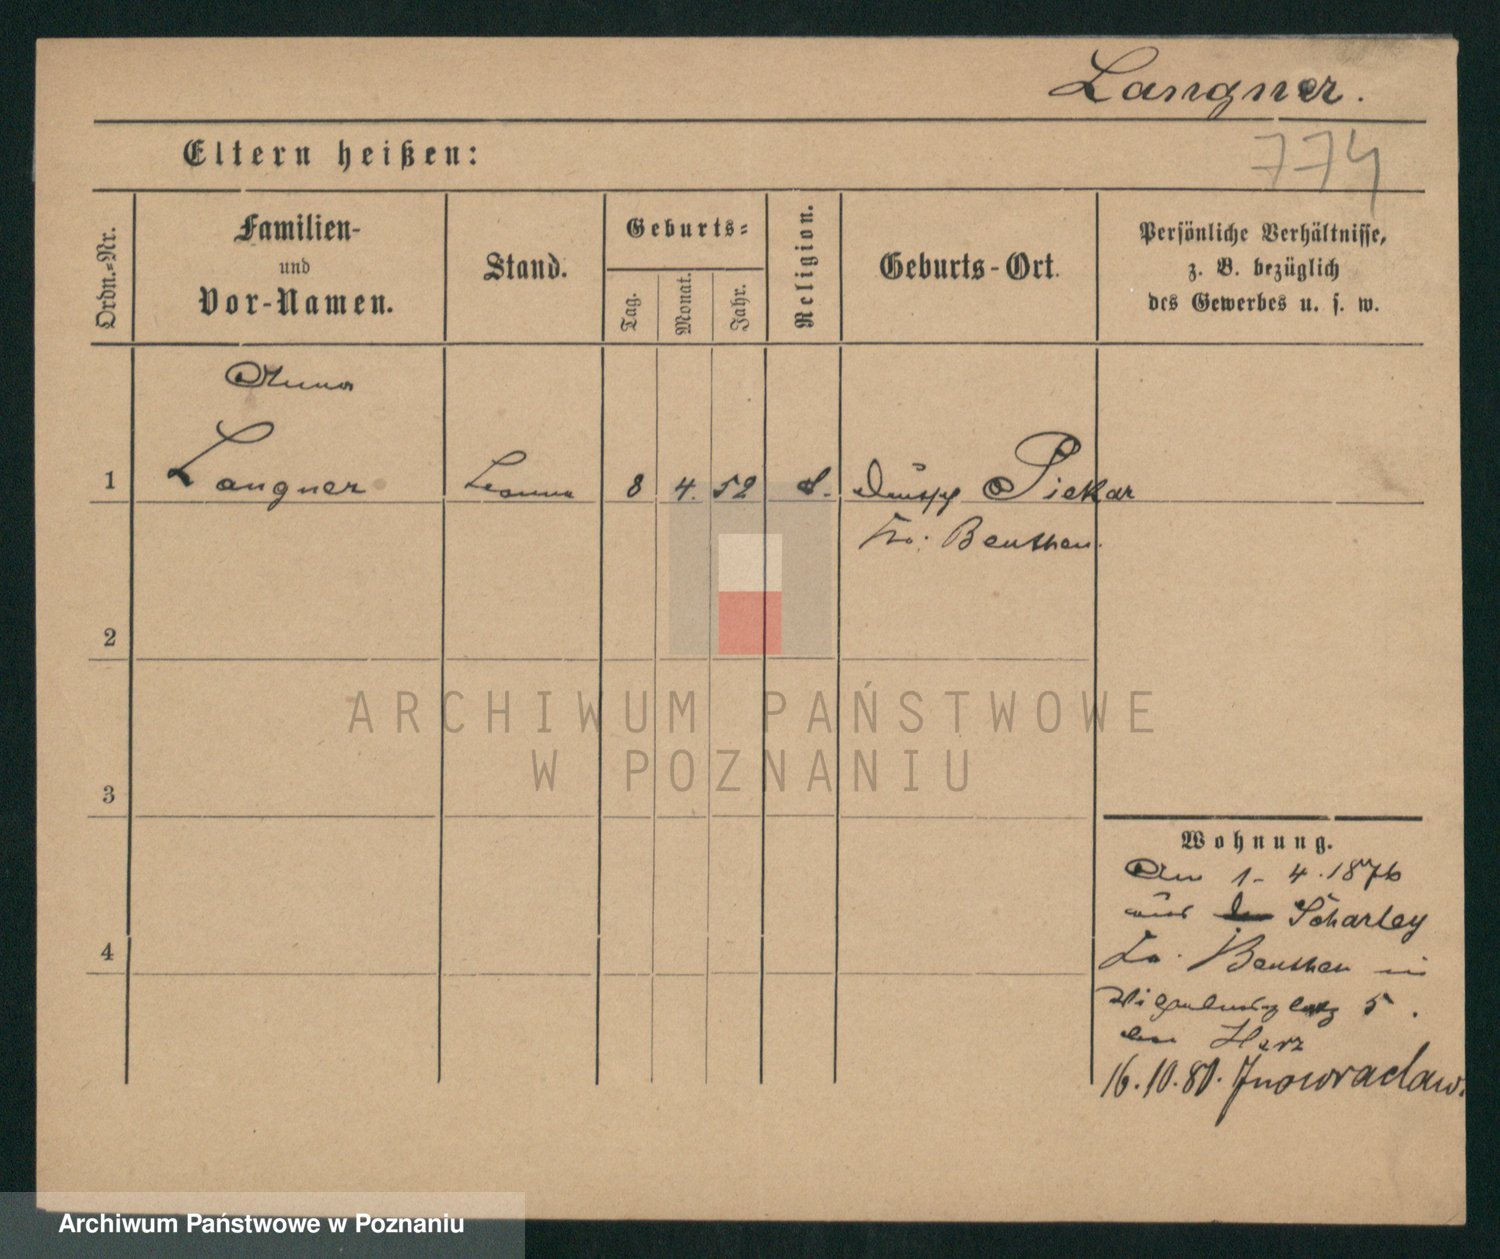 Langner.
774
Eltern heißen:
Ordn.-Nr.
Familien-
und
Vor-Namen.
Stand.
Geburts-
Tag.
Monat.
Jahr.
Religion.
Geburts-Ort.
Persönliche Verhältnisse,
z. B. bezüglich
des Gewerbes u. s. w.
Anna
1 Langner 8 4. 52 Piekar
Beuthen.
2
3
4
Wohnung.
1. 4. 1876
aus Scharley
Beuthen in
5.
Herz
16.10.80. Inowraclaw.
ARCHIWUM PAŃSTWOWE
W POZNANIU
Archiwum Państwowe w Poznaniu